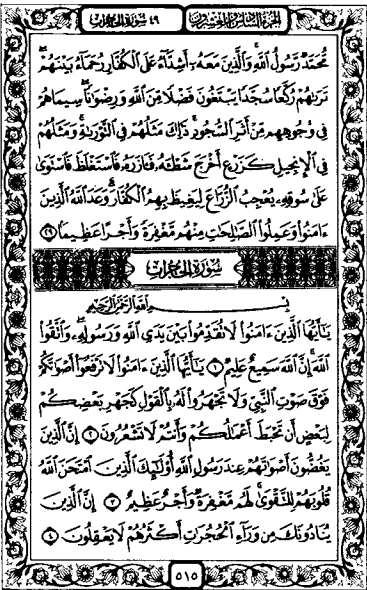 ٤٩ سورة الحجرات الجزء السادس والعشرون
مُّحَمَّدٌ رَّسُولُ اللَّهِ وَالَّذِينَ مَعَهُ أَشِدَّاءُ عَلَى الْكُفَّارِ رُحَمَاءُ بَيْنَهُمْ
تَرَىٰهُمْ رُكَّعًا سُجَّدًا يَبْتَغُونَ فَضْلًا مِّنَ اللَّهِ وَرِضْوَٰنًا سِيمَاهُمْ
فِي وُجُوهِهِم مِّنْ أَثَرِ السُّجُودِ ذَٰلِكَ مَثَلُهُمْ فِي التَّوْرَىٰةِ وَمَثَلُهُمْ
فِي الْإِنجِيلِ كَزَرْعٍ أَخْرَجَ شَطْـَٔهُ فَـَٔازَرَهُ فَاسْتَغْلَظَ فَاسْتَوَىٰ
عَلَىٰ سُوقِهِ يُعْجِبُ الزُّرَّاعَ لِيَغِيظَ بِهِمُ الْكُفَّارَ وَعَدَ اللَّهُ الَّذِينَ
ءَامَنُوا وَعَمِلُوا الصَّٰلِحَٰتِ مِنْهُم مَّغْفِرَةً وَأَجْرًا عَظِيمًا ٢٩
سُورَةُ الحُجُرَاتِ
بِسْمِ اللَّهِ الرَّحْمَٰنِ الرَّحِيمِ
يَٰٓأَيُّهَا الَّذِينَ ءَامَنُوا لَا تُقَدِّمُوا بَيْنَ يَدَيِ اللَّهِ وَرَسُولِهِ وَاتَّقُوا
اللَّهَ إِنَّ اللَّهَ سَمِيعٌ عَلِيمٌ ١ يَٰٓأَيُّهَا الَّذِينَ ءَامَنُوا لَا تَرْفَعُوا أَصْوَٰتَكُمْ
فَوْقَ صَوْتِ النَّبِيِّ وَلَا تَجْهَرُوا لَهُ بِالْقَوْلِ كَجَهْرِ بَعْضِكُمْ
لِبَعْضٍ أَن تَحْبَطَ أَعْمَٰلُكُمْ وَأَنتُمْ لَا تَشْعُرُونَ ٢ إِنَّ الَّذِينَ
يَغُضُّونَ أَصْوَٰتَهُمْ عِندَ رَسُولِ اللَّهِ أُولَٰٓئِكَ الَّذِينَ امْتَحَنَ اللَّهُ
قُلُوبَهُمْ لِلتَّقْوَىٰ لَهُم مَّغْفِرَةٌ وَأَجْرٌ عَظِيمٌ ٣ إِنَّ الَّذِينَ
يُنَادُونَكَ مِن وَرَاءِ الْحُجُرَٰتِ أَكْثَرُهُمْ لَا يَعْقِلُونَ ٤
٥١٥